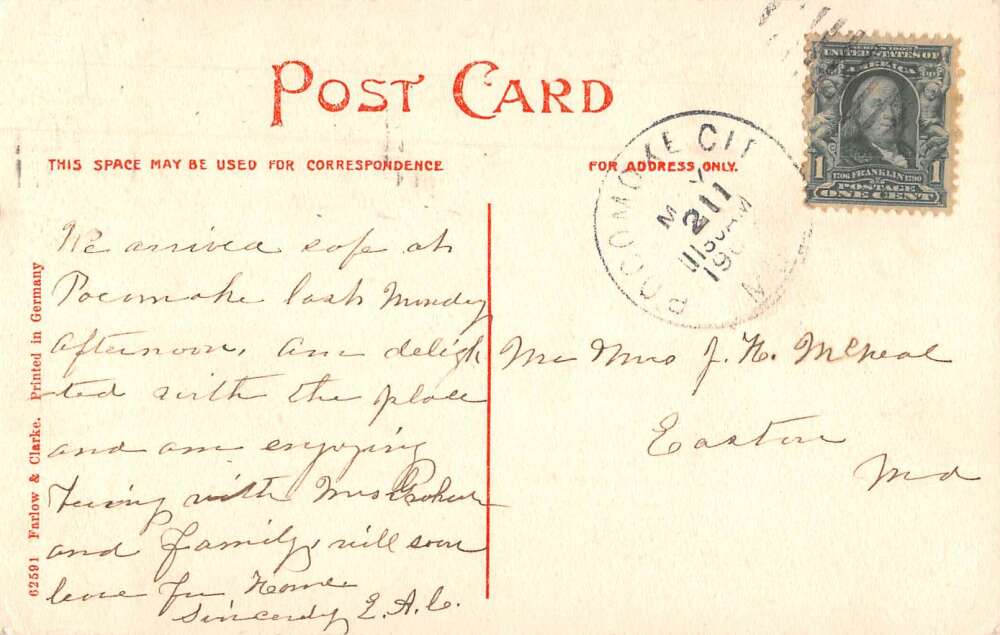 POST CARD
THIS SPACE MAY BE USED FOR CORRESPONDENCE
FOR ADDRESS ONLY.
SERIES 1902
UNITED STATES OF
AMERICA
1706 FRANKLIN 1790
POSTAGE
1 ONE CENT
POCOMOKE CIT
M Y
21
1130AM
190
M
We arrived safe at
Pocomoke last Monday
afternoon. Am deligh
ted with the place
and am enjoying
with Mrs
and family, will soon
leave for Home
Sincerely E. A. C.
Mr Mrs J. H. McNeal
Easton
Md
62591 Farlow & Clarke. Printed in Germany